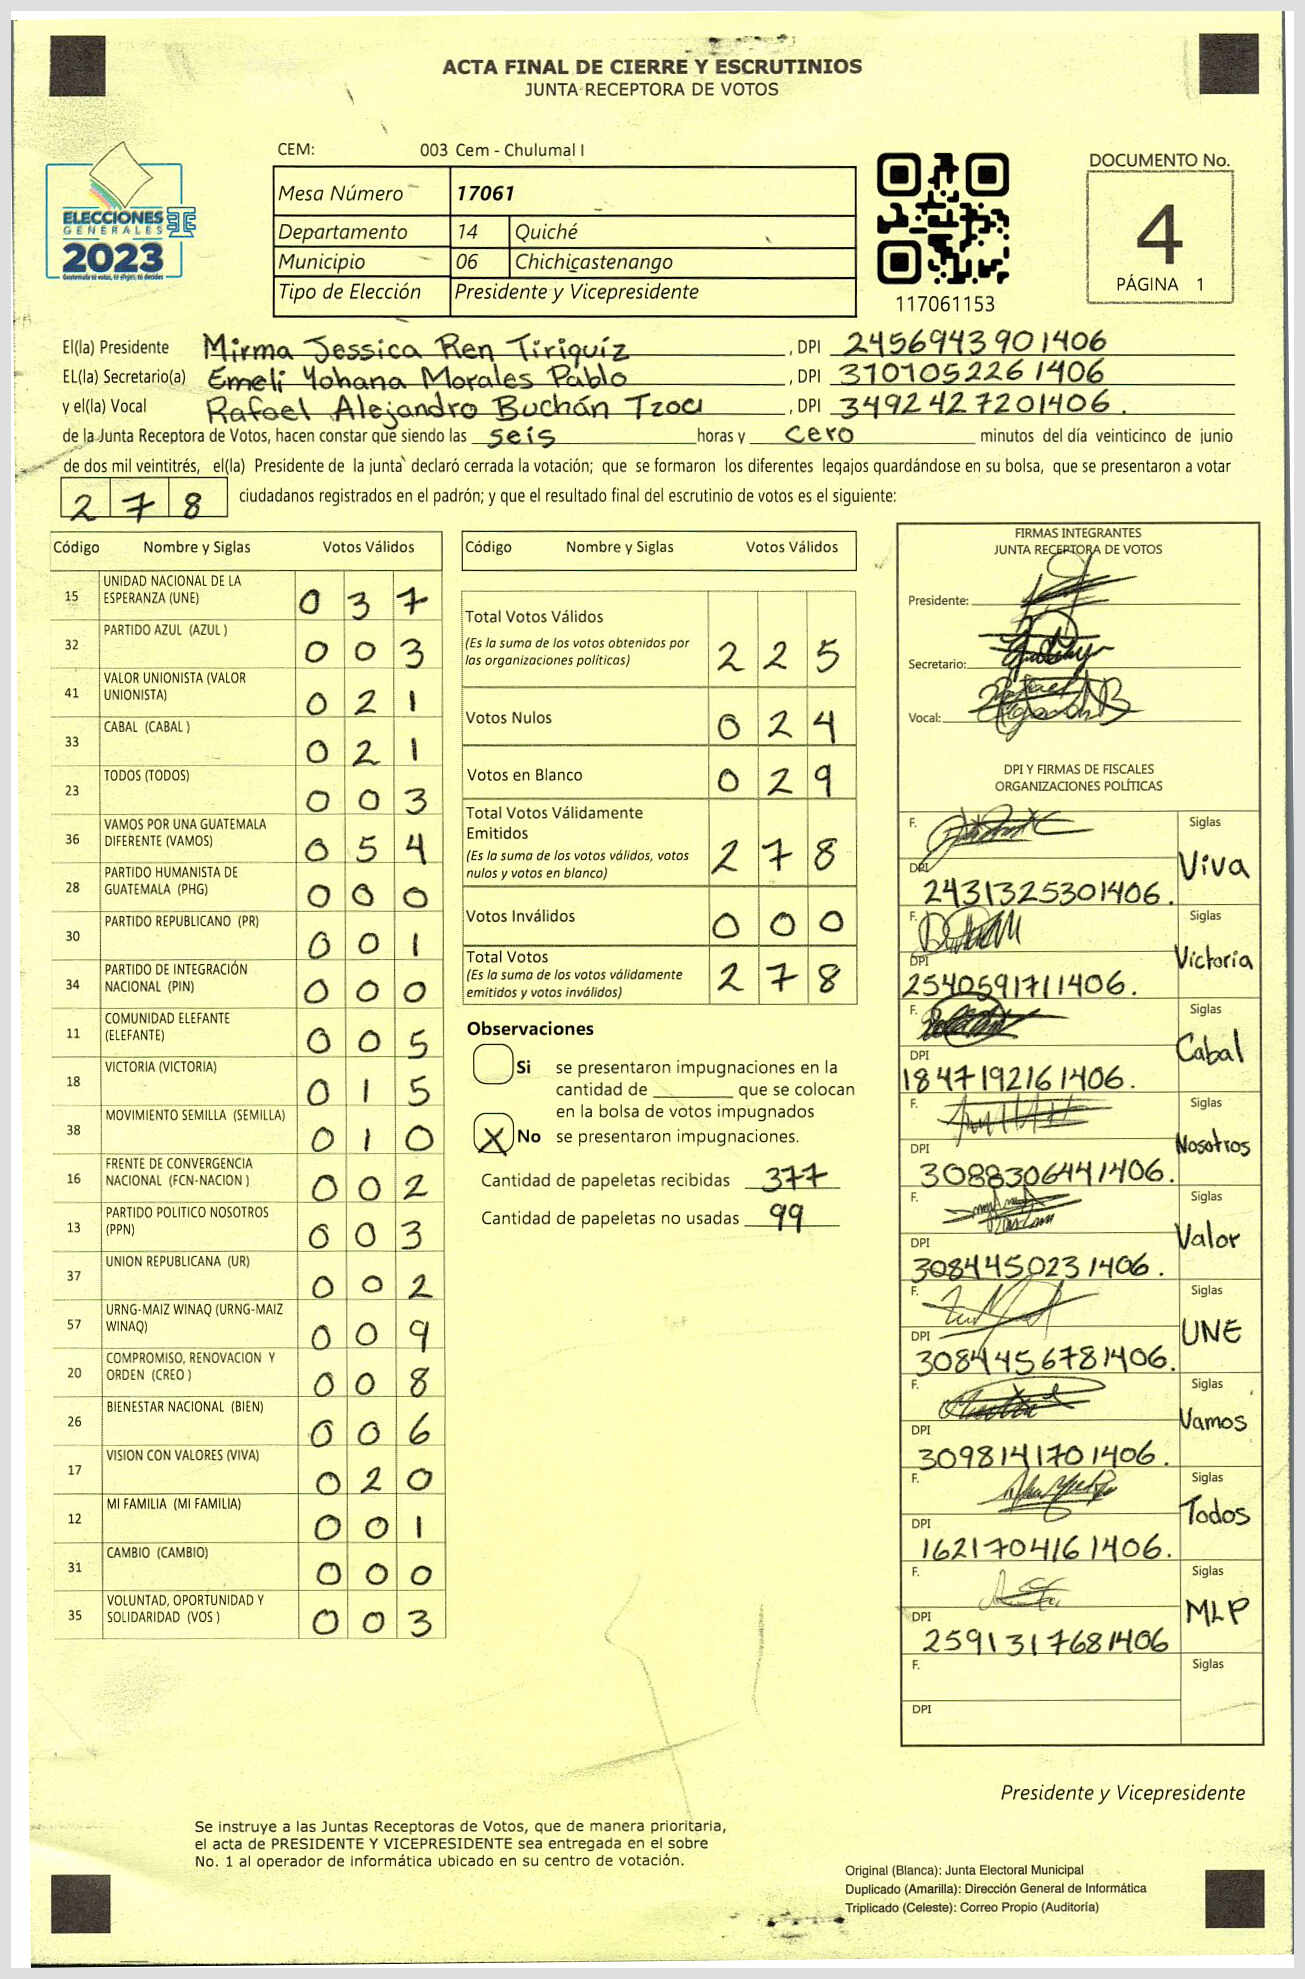 ACTA FINAL DE CIERRE Y ESCRUTINIOS
JUNTA RECEPTORA DE VOTOS
CEM: 003 Cem - Chulumal I
ELECCIONES
GENERALES
2023
Mesa Número 17061
Departamento 14 Quiché
Municipio 06 Chichicastenango
Tipo de Elección Presidente y Vicepresidente
117061153
DOCUMENTO No.
4
PÁGINA 1
El(la) Presidente Mirma Jessica Ren Tiriquíz , DPI 2456943901406
EL(la) Secretario(a) Emeli Yohana Morales Pablo , DPI 3101052261406
y el(la) Vocal Rafael Alejandro Buchán Tzoc , DPI 3492427201406.
de la Junta Receptora de Votos, hacen constar que siendo las seis horas y cero minutos del día veinticinco de junio
de dos mil veintitrés, el(la) Presidente de la junta declaró cerrada la votación; que se formaron los diferentes legajos guardándose en su bolsa, que se presentaron a votar
278 ciudadanos registrados en el padrón; y que el resultado final del escrutinio de votos es el siguiente:
Código Nombre y Siglas Votos Válidos
15 UNIDAD NACIONAL DE LA ESPERANZA (UNE) 037
32 PARTIDO AZUL (AZUL ) 003
41 VALOR UNIONISTA (VALOR UNIONISTA) 021
33 CABAL (CABAL ) 021
23 TODOS (TODOS) 003
36 VAMOS POR UNA GUATEMALA DIFERENTE (VAMOS) 054
28 PARTIDO HUMANISTA DE GUATEMALA (PHG) 000
30 PARTIDO REPUBLICANO (PR) 001
34 PARTIDO DE INTEGRACIÓN NACIONAL (PIN) 000
11 COMUNIDAD ELEFANTE (ELEFANTE) 005
18 VICTORIA (VICTORIA) 015
38 MOVIMIENTO SEMILLA (SEMILLA) 010
16 FRENTE DE CONVERGENCIA NACIONAL (FCN-NACION ) 002
13 PARTIDO POLITICO NOSOTROS (PPN) 003
37 UNION REPUBLICANA (UR) 002
57 URNG-MAIZ WINAQ (URNG-MAIZ WINAQ) 009
20 COMPROMISO, RENOVACION Y ORDEN (CREO ) 008
26 BIENESTAR NACIONAL (BIEN) 006
17 VISION CON VALORES (VIVA) 020
12 MI FAMILIA (MI FAMILIA) 001
31 CAMBIO (CAMBIO) 000
35 VOLUNTAD, OPORTUNIDAD Y SOLIDARIDAD (VOS ) 003
Código Nombre y Siglas Votos Válidos
Total Votos Válidos
(Es la suma de los votos obtenidos por
las organizaciones políticas) 225
Votos Nulos 024
Votos en Blanco 029
Total Votos Válidamente
Emitidos
(Es la suma de los votos válidos, votos
nulos y votos en blanco) 278
Votos Inválidos 000
Total Votos
(Es la suma de los votos válidamente
emitidos y votos inválidos) 278
Observaciones
Si se presentaron impugnaciones en la
cantidad de ________ que se colocan
en la bolsa de votos impugnados
X No se presentaron impugnaciones.
Cantidad de papeletas recibidas 377
Cantidad de papeletas no usadas 99
FIRMAS INTEGRANTES
JUNTA RECEPTORA DE VOTOS
Presidente:
Secretario:
Vocal:
DPI Y FIRMAS DE FISCALES
ORGANIZACIONES POLÍTICAS
F. Siglas
DPI 2431325301406. Viva
F. Siglas
DPI 2540591711406. Victoria
F. Siglas
DPI 1847192161406. Cabal
F. Siglas
DPI 3088306441406. Nosotros
F. Siglas
DPI 3084450231406. Valor
F. Siglas
DPI 3084456781406. UNE
F. Siglas
DPI 3098141701406. Vamos
F. Siglas
DPI 1621704161406. Todos
F. Siglas
DPI 2591317681406 MLP
F. Siglas
DPI
Presidente y Vicepresidente
Se instruye a las Juntas Receptoras de Votos, que de manera prioritaria,
el acta de PRESIDENTE Y VICEPRESIDENTE sea entregada en el sobre
No. 1 al operador de informática ubicado en su centro de votación.
Original (Blanca): Junta Electoral Municipal
Duplicado (Amarilla): Dirección General de Informática
Triplicado (Celeste): Correo Propio (Auditoría)